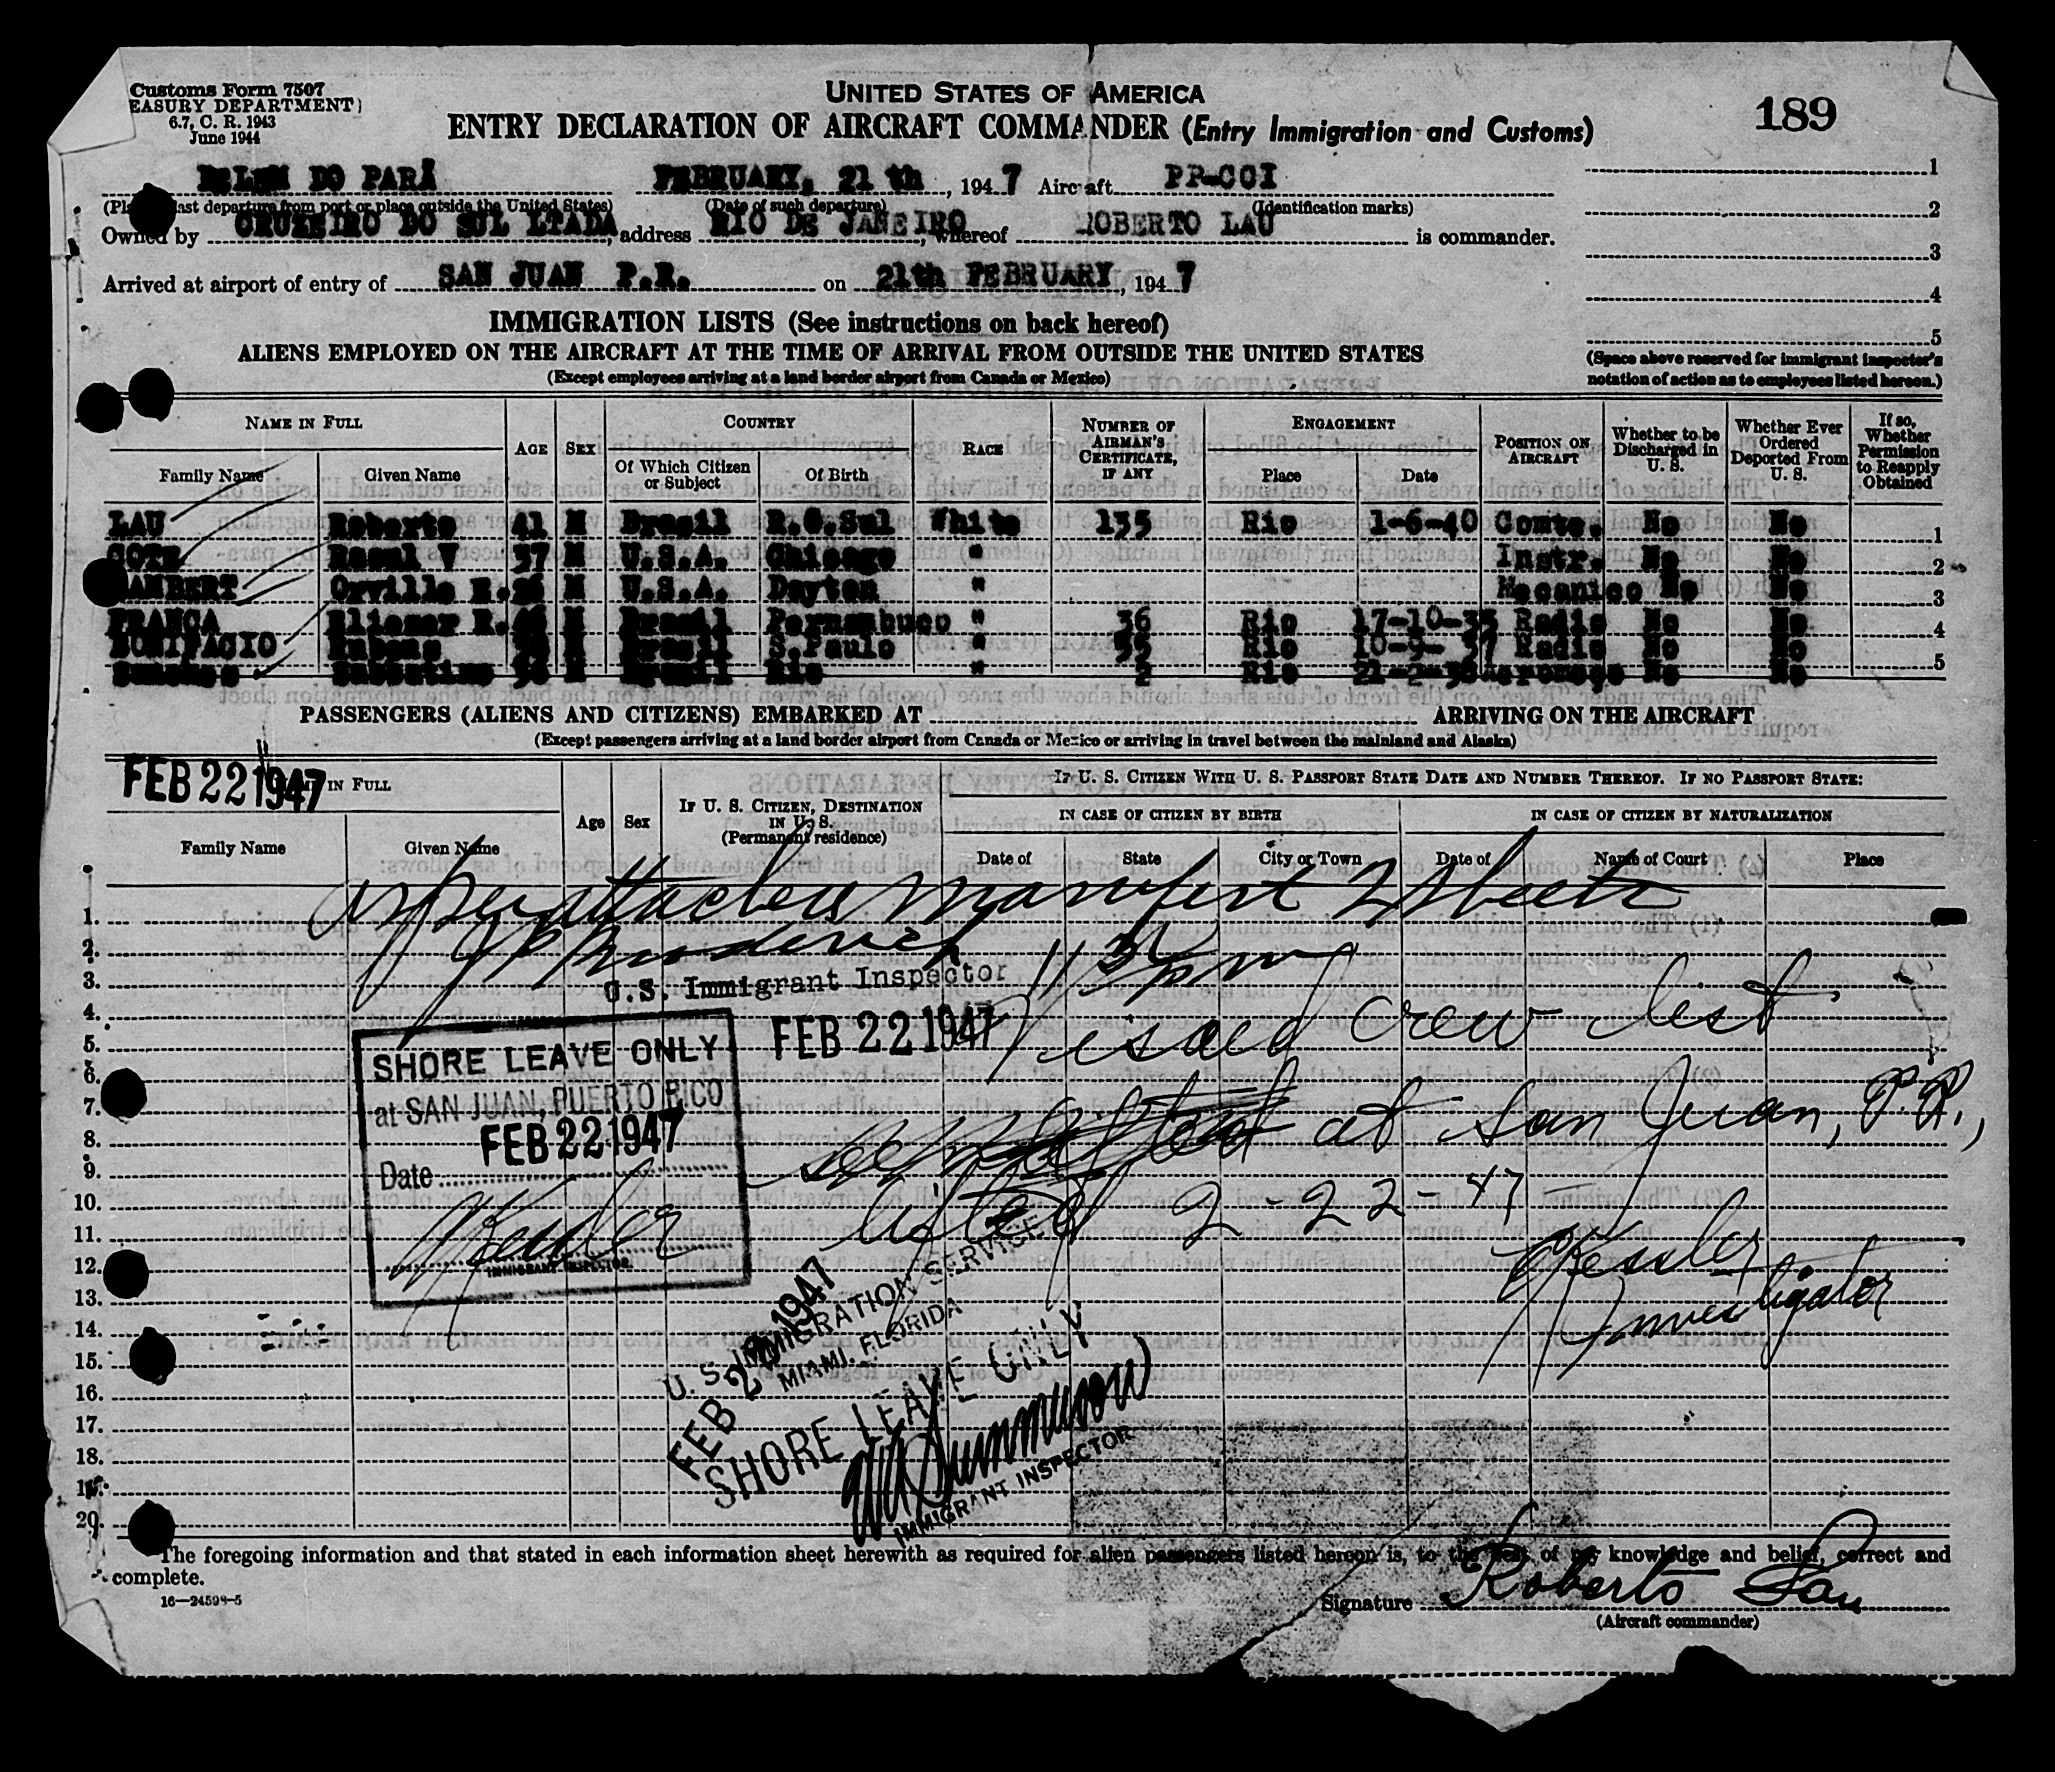 Customs Form 7507
EASURY DEPARTMENT)
6.7, C. R. 1943
June 1944
UNITED STATES OF AMERICA
ENTRY DECLARATION OF AIRCRAFT COMMANDER (Entry Immigration and Customs)
189
BELEM DO PARÁ FEBRUARY, 21 th, 1947 Aircraft PP-CCI
(Pla last departure from port or place outside the United States) (Date of such departure) (Identification marks)
Owned by CRUZEIRO DO SUL LTADA, address RIO DE JANEIRO, whereof ROBERTO LAU is commander.
Arrived at airport of entry of SAN JUAN P.R. on 21th FEBRUARY, 1947
1
2
3
4
5
(Space above reserved for immigrant inspector's notation of action as to employees listed hereon.)
IMMIGRATION LISTS (See instructions on back hereof)
ALIENS EMPLOYED ON THE AIRCRAFT AT THE TIME OF ARRIVAL FROM OUTSIDE THE UNITED STATES
(Except employees arriving at a land border airport from Canada or Mexico)
NAME IN FULL
Family Name Given Name
AGE SEX
COUNTRY
Of Which Citizen or Subject Of Birth
RACE
NUMBER OF AIRMAN'S CERTIFICATE, IF ANY
ENGAGEMENT
Place Date
POSITION ON AIRCRAFT
Whether to be Discharged in U. S.
Whether Ever Ordered Deported From U. S.
If so, Whether Permission to Reapply Obtained
LAU Roberto 41 M Brasil R.G.Sul White 135 Rio 1-6-40 Comte. No No 1
COTE Raoul V 37 M U.S.A. Chicago " Instr. No No 2
LAMBERT Orville R. 26 M U.S.A. Dayton " Mecanico No No 3
FRANÇA Eliezer R. M Brasil Pernambuco " 36 Rio 17-10-35 Radio No No 4
BONIFACIO Rubens M Brasil S.Paulo " 35 Rio 10-9-37 Radio No No 5
Sanches M Brasil Rio " 2 Rio 21-2-36 No No
PASSENGERS (ALIENS AND CITIZENS) EMBARKED AT ARRIVING ON THE AIRCRAFT
(Except passengers arriving at a land border airport from Canada or Mexico or arriving in travel between the mainland and Alaska)
FEB 22 1947
IN FULL
Family Name Given Name
Age Sex
IF U. S. CITIZEN, DESTINATION IN U. S. (Permanent residence)
IF U. S. CITIZEN WITH U. S. PASSPORT STATE DATE AND NUMBER THEREOF. IF NO PASSPORT STATE:
IN CASE OF CITIZEN BY BIRTH IN CASE OF CITIZEN BY NATURALIZATION
Date of State City or Town Date of Name of Court Place
As per attached manifest 2 sheets
1.
2.
3.
4.
5.
6.
7.
8.
9.
10.
11.
12.
13.
14.
15.
16.
17.
18.
19.
20.
U.S. Immigrant Inspector
FEB 22 1947
Visaed crew list
at San Juan, P.R.,
lifted 2-22-47
Kessler
Investigator
SHORE LEAVE ONLY
at SAN JUAN, PUERTO RICO
FEB 22 1947
Date
Kessler
IMMIGRANT INSPECTOR
U. S. IMMIGRATION SERVICE
MIAMI, FLORIDA
FEB 2 1947
SHORE LEAVE ONLY
IMMIGRANT INSPECTOR
The foregoing information and that stated in each information sheet herewith as required for alien passengers listed hereon is, to the best of my knowledge and belief, correct and
complete.
16—24598-5
Signature Roberto Lau
(Aircraft commander)